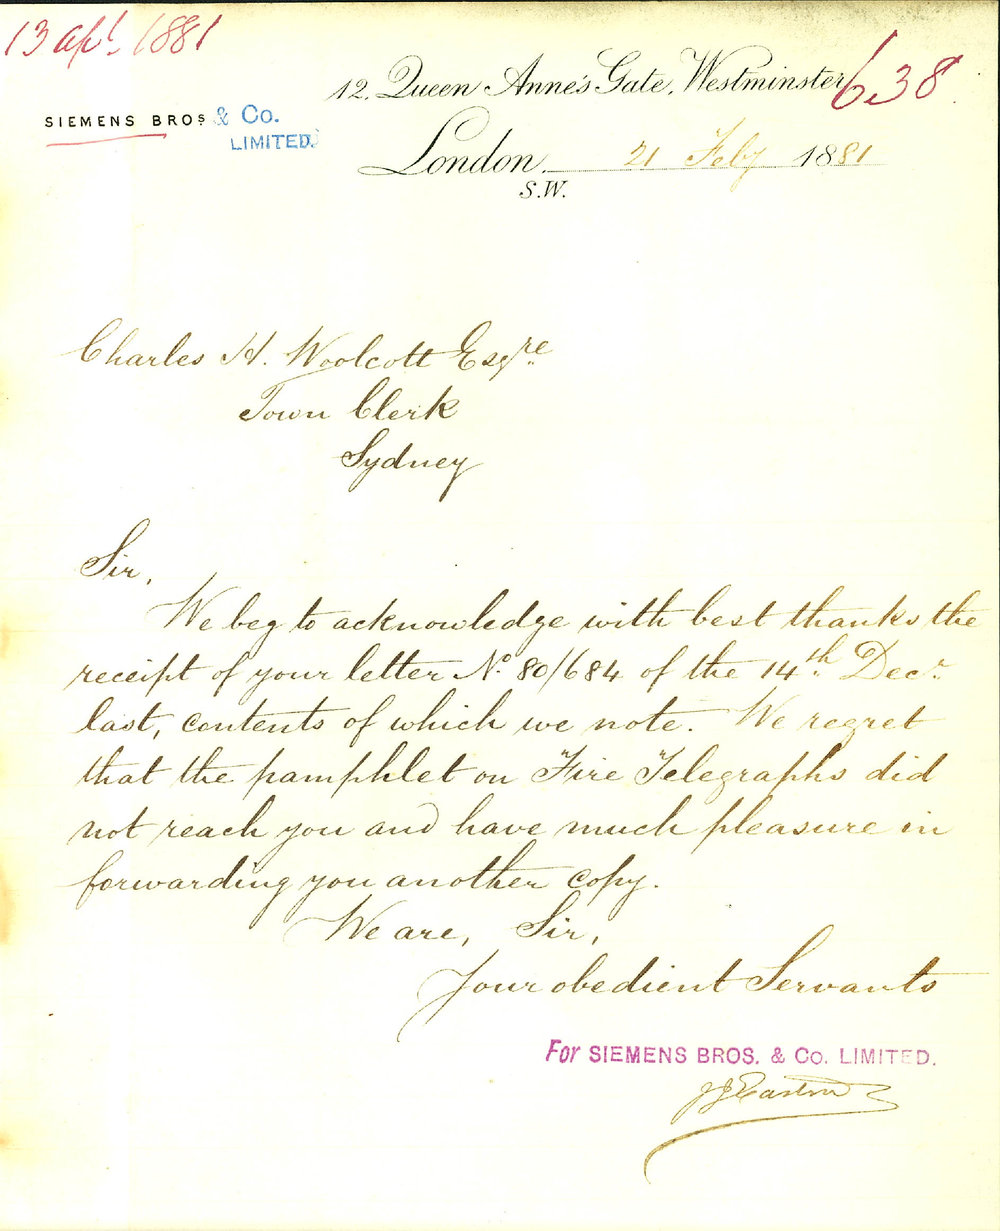 13 apl. 1881
12, Queen Anne's Gate, Westminster
638
SIEMENS BROS & Co.
LIMITED.
London, 21 Feby 1881
S.W.
Charles H. Woolcott Esqre
Town Clerk
Sydney
Sir,
We beg to acknowledge with best thanks the
receipt of your letter No. 80/684 of the 14th Decr.
last, contents of which we note. We regret
that the pamphlet on Fire Telegraphs did
not reach you and have much pleasure in
forwarding you another copy.
We are, Sir,
Your obedient Servants
For SIEMENS BROS. & Co. LIMITED.